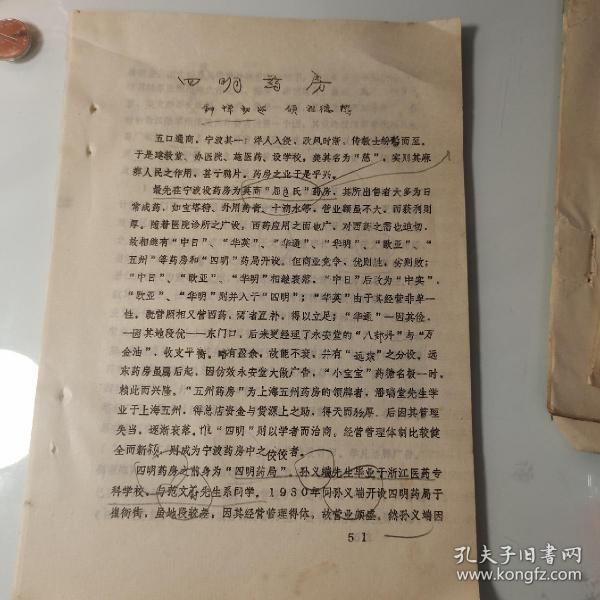 四明药房
五口通商,宁波其一;洋人入侵,欧风时渐,传教士纷黝而至。
于是建教堂、办医院、施医药、设学校,美其名为“慈”,实则其麻
痹人民之作用,甚于鸦片。药房之业于是乎兴。
最先在宁波设药房为英商“屈臣氏”药房,其所出售者大多为日
常成药,如宝塔特、外用药膏、十滴水等。营业额虽不大,而获利则
厚。随着医院诊所之广设,西药应用之面也广,对西药之需也迫切,
故相继有“中日”、“华英”、“华通”、“华明”、“欧亚”、“
五州”等药房和“四明”药局开设。但商业竞争,优则胜,劣则败;
“中日”、“欧亚”、“华明”相继衰落。“中日”后改为“中实”,
“欧亚”、“华明”则并入于“四明”;“华英”由于其经营非单一
性,既营照相又营西药,两者互补,得以立足;“华通”一因其俭,
一因其地段优——东门口,后来更经理了永安堂的“八卦丹”与“万
金油”,收支平衡,略有盈余,故能不衰,并有“远东”之分设。远
东药房虽属后起,因仿效永安堂大做广告,“小宝宝”药糖名极一时,
赖此而兴隆。“五州药房”为上海五州药房的领牌者,潘瑞堂先生学
业于上海五州,得总店资金与货源上之助,得天而独厚,后因其管理
失当,逐渐衰落。惟“四明”则以学者而治商,经营管理体制比较健
全而新颖,则成为宁波药房中之佼佼者。
四明药房之前身为“四明药局”。孙义端先生毕业于浙江医药专
科学校,与范文蔚先生系同学。1930年间孙义端开设四明药局于
崔衙街,虽地段较差,因其经营管理得体,故营业颇盛。然孙义端因
51
孔夫子旧书网
www.kongfz.com